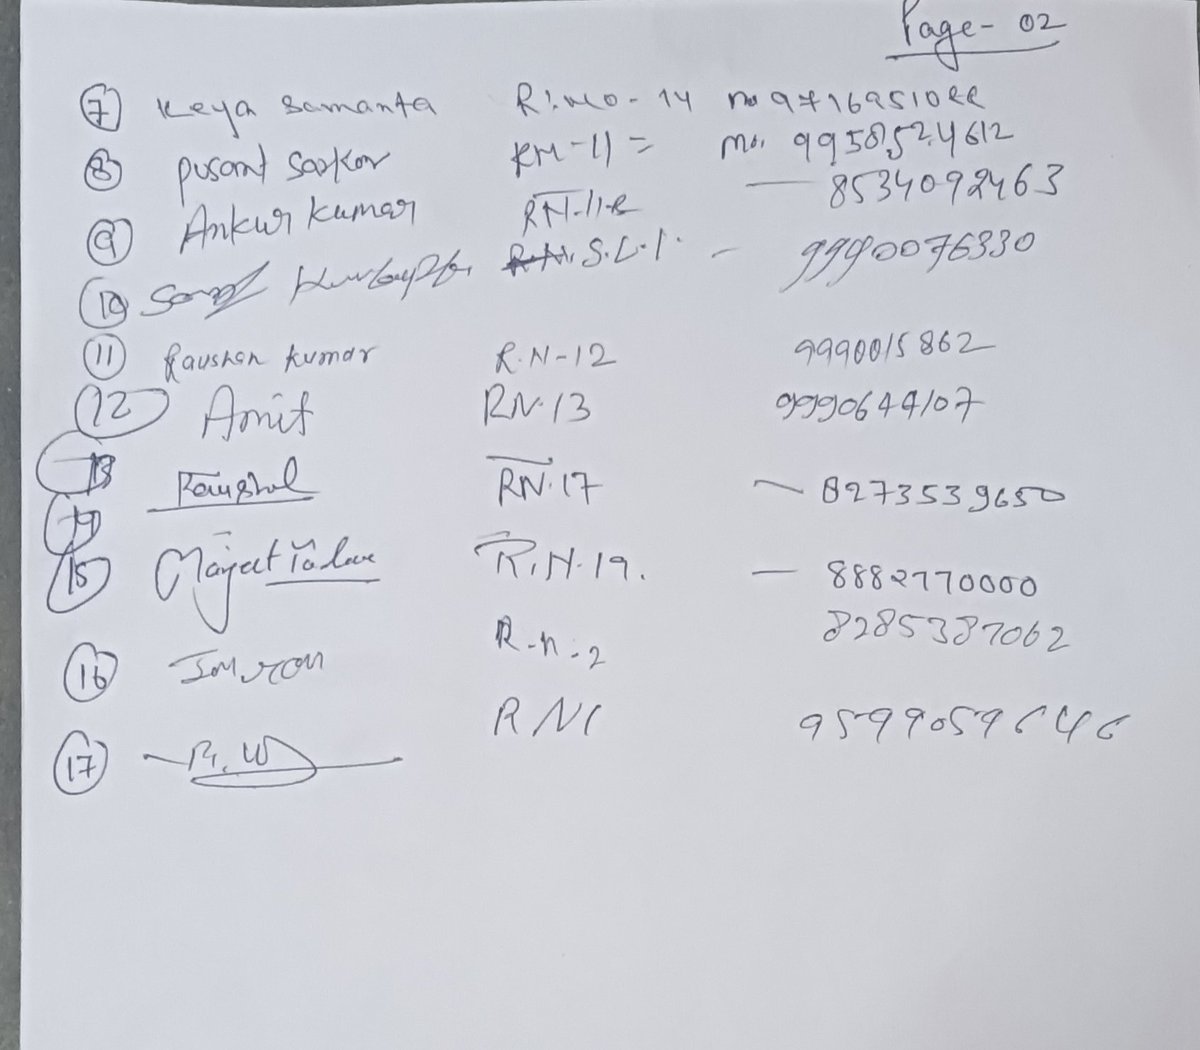 Page- 02
7 Keya Samanta R.no - 14 no
8 pusant Sarkar RM-11 = Mo. 9958524612
9 Ankur kumar RN-11-B — 8534092463
10 S.L.1. - 9990076330
11 Raushan kumar R.N-12 9990015862
12 Amit RN.13 9990644107
13 Kaushal RN.17 — 8273539650
14
15 R.N.19. — 8882770000
16 Imran R.n.2 8285387062
17 R.W RN1 9599059646